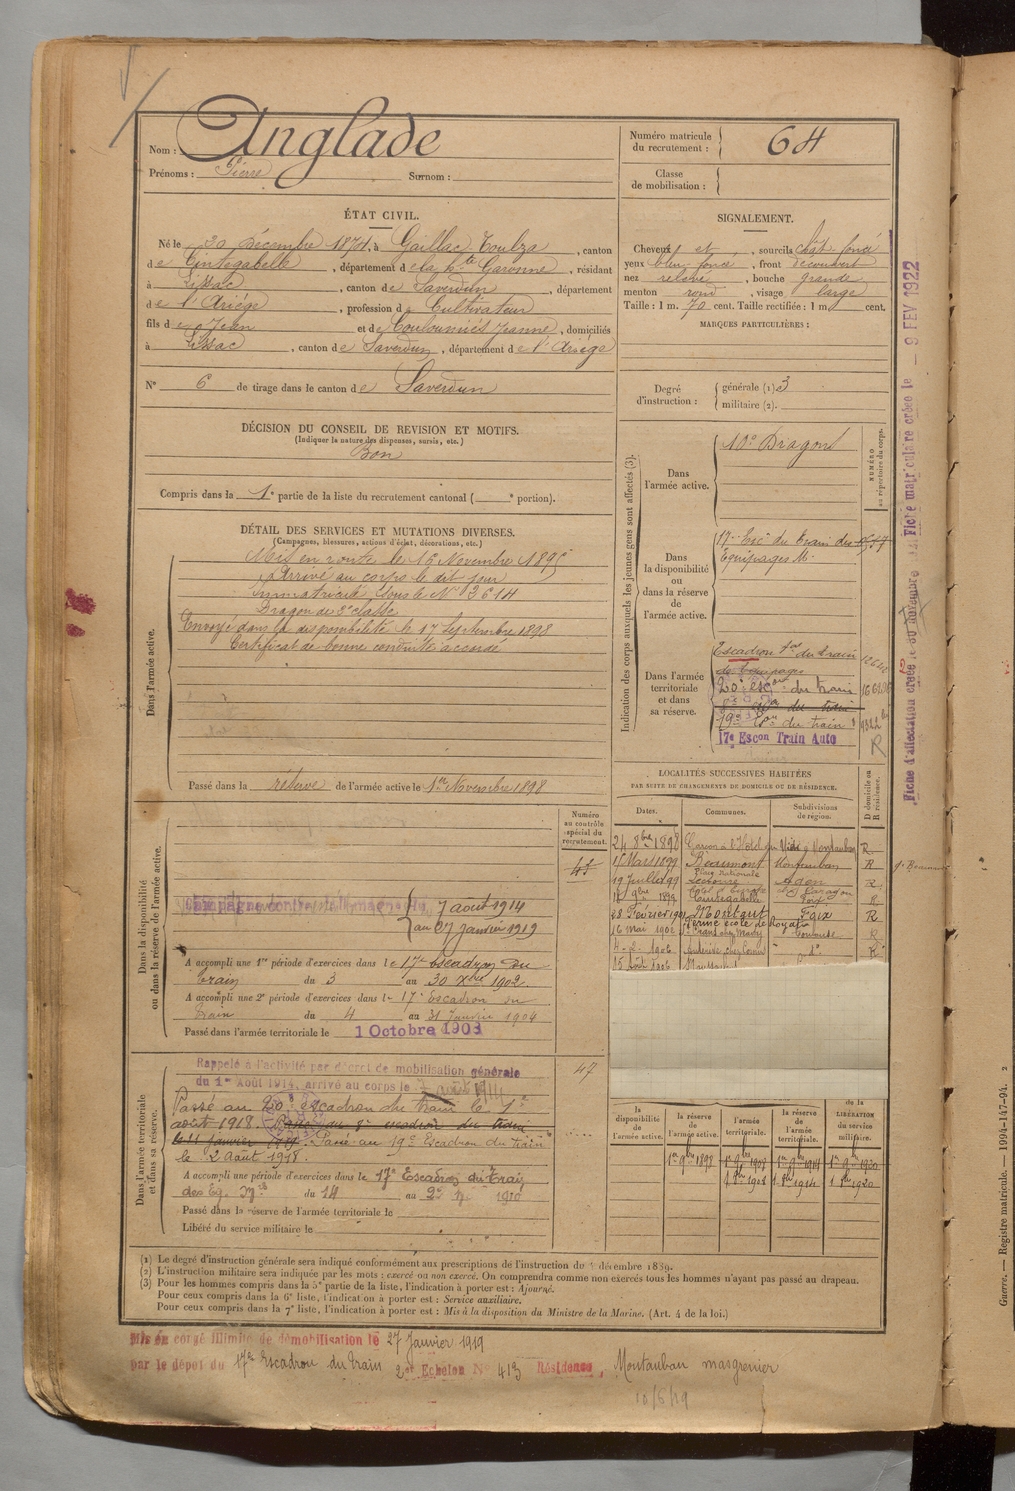 Nom : Anglade
Prénoms : Pierre Surnom :
Numéro matricule du recrutement : 64
Classe de mobilisation :
ÉTAT CIVIL.
Né le 30 Décembre 1874, à Gaillac Toulza, canton
de Cintegabelle, département de la Hte Garonne, résidant
à Lissac, canton de Saverdun, département
de l'Ariége, profession de Cultivateur
fils de Jean et de Couloumiés Jeanne, domiciliés
à Lissac, canton de Saverdun, département de l'Ariége
N° 6 de tirage dans le canton de Saverdun
SIGNALEMENT.
Cheveux et, sourcils chât. foncé
yeux bleu foncé, front découvert
nez relevé, bouche grande
menton rond, visage large
Taille : 1 m. 70 cent. Taille rectifiée : 1 m. cent.
MARQUES PARTICULIÈRES :
Degré d'instruction : générale (1) 3
militaire (2).
DÉCISION DU CONSEIL DE REVISION ET MOTIFS.
(Indiquer la nature des dispenses, sursis, etc.)
Bon
Compris dans la 1e partie de la liste du recrutement cantonal ( e portion).
DÉTAIL DES SERVICES ET MUTATIONS DIVERSES.
(Campagnes, blessures, actions d'éclat, décorations, etc.)
Dans l'armée active.
Mis en route le 16 Novembre 1895
Arrivé au corps le dit jour
Immatriculé sous le N° 3614
Dragon de 2e classe
Envoyé dans la disponibilité le 17 Septembre 1898
Certificat de bonne conduite accordé
Passé dans la réserve de l'armée active le 1er Novembre 1898
Indication des corps auxquels les jeunes gens sont affectés (3).
NUMÉRO au répertoire du corps.
Dans l'armée active.
10e Dragons
Dans la disponibilité ou dans la réserve de l'armée active.
17e Esc. du Train des
Equipages Mre
Dans l'armée territoriale et dans sa réserve.
Escadron du train
des Equipages
20e escon du train
19e Eson du train
17e Escon Train Auto
Fiche matriculaire créée le - 9 FEV 1922
Fiche d'affectation créée le 30 novembre
LOCALITÉS SUCCESSIVES HABITÉES
PAR SUITE DE CHANGEMENTS DE DOMICILE OU DE RÉSIDENCE.
D domicile ou R résidence.
Dates. Communes. Subdivisions de région.
24 8bre 1898 Montauban R
15 Mars 1899 Beaumont Montauban R
19 Juillet 99 Place Nationale Agen R
1899 Cintegabelle Foix R
28 Février 1901 Montaut Foix R
Ferme école de Royat
16 mai 1902 Toulouse R
4-2-1906
15 Août 1906
Dans la disponibilité ou dans la réserve de l'armée active.
Numéro au contrôle spécial du recrutement.
43
Campagne contre l'Allemagne du 7 août 1914
au 27 janvier 1919
A accompli une 1re période d'exercices dans le 17e escadron du
train du 3 au 30 Xbre 1902
A accompli une 2e période d'exercices dans le 17e Escadron du
train du 4 au 31 Janvier 1904
Passé dans l'armée territoriale le 1 Octobre 1908
Dans l'armée territoriale et dans sa réserve.
47
Rappelé à l'activité par décret de mobilisation générale
du 1er Août 1914, arrivé au corps le 7 août 1914
Passé au 20e escadron du train le 1er
août 1918. Passé au 8e escadron du train
le 11 janvier Passé au 19e Escadron du train
le 2 Août 1918.
A accompli une période d'exercices dans le 17e Escadron du Train
des Eq. Mre du 14 au 22 1910
Passé dans la réserve de l'armée territoriale le
Libéré du service militaire le
la disponibilité de l'armée active. la réserve de l'armée active. l'armée territoriale. la réserve de l'armée territoriale. de la LIBÉRATION du service militaire.
1er 9bre 1898 1er 9bre 1908 1er 9bre 1914 1er 9bre 1920
1 8bre 1908 1 8bre 1914 1 8bre 1920
(1) Le degré d'instruction générale sera indiqué conformément aux prescriptions de l'instruction du décembre 1889.
(2) L'instruction militaire sera indiquée par les mots : exercé ou non exercé. On comprendra comme non exercés tous les hommes n'ayant pas passé au drapeau.
(3) Pour les hommes compris dans la 5e partie de la liste, l'indication à porter est : Ajourné.
Pour ceux compris dans la 6e liste, l'indication à porter est : Service auxiliaire.
Pour ceux compris dans la 7e liste, l'indication à porter est : Mis à la disposition du Ministre de la Marine. (Art. 4 de la loi.)
Mis en congé illimité de démobilisation le 27 Janvier 1919
par le dépôt du 17e Escadron du train 2e Echelon N° 413 Résidence, Montauban masgrenier
10/5/19
Guerre. — Registre matricule. — 1994-147-94. 2